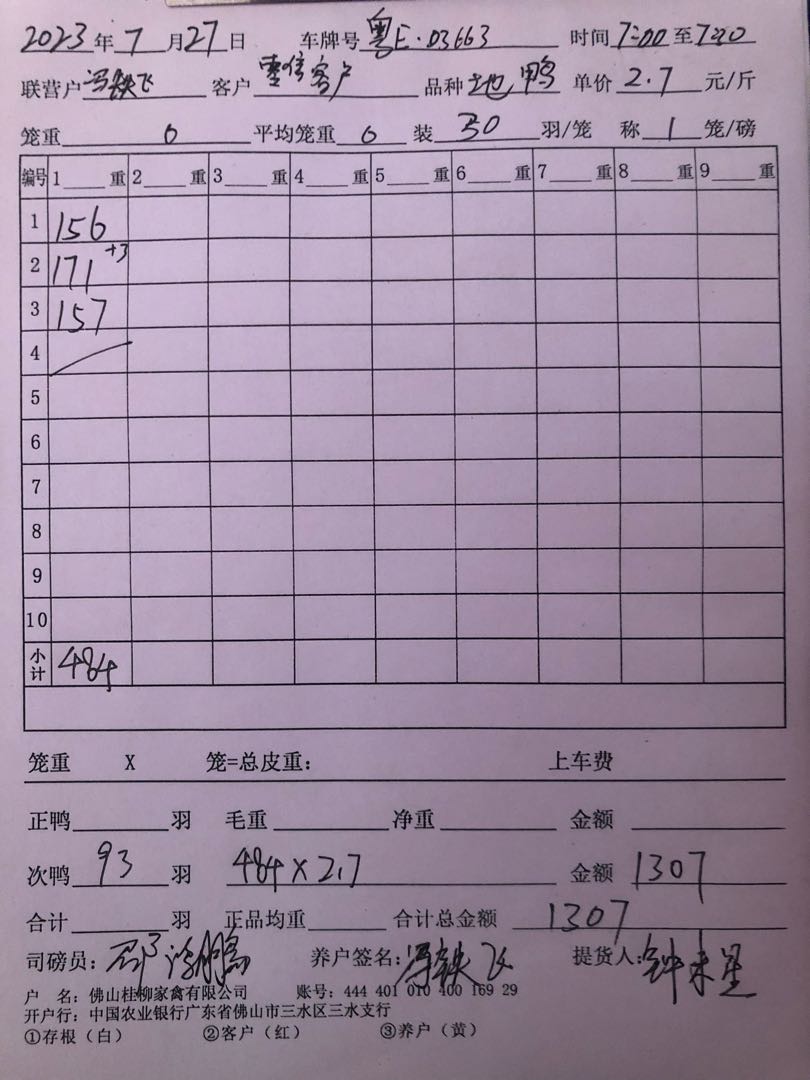 2023年7月27日 车牌号 粤E·03663 时间 7:00 至 7:30
联营户 冯铁飞 客户 客户 品种 土也鸭 单价 2.7 元/斤
笼重 0 平均笼重 0 装 30 羽/笼 称 1 笼/磅
编号 1 重 2 重 3 重 4 重 5 重 6 重 7 重 8 重 9 重
1 156
2 171 +3
3 157
4
5
6
7
8
9
10
小计 484
笼重 X 笼=总皮重: 上车费
正鸭 羽 毛重 净重 金额
次鸭 93 羽 484×2.7 金额 1307
合计 羽 正品均重 合计总金额 1307
司磅员: 养户签名: 冯铁飞 提货人: 钟
户 名: 佛山桂柳家禽有限公司 账号: 444 401 010 400 169 29
开户行: 中国农业银行广东省佛山市三水区三水支行
①存根(白) ②客户(红) ③养户(黄)